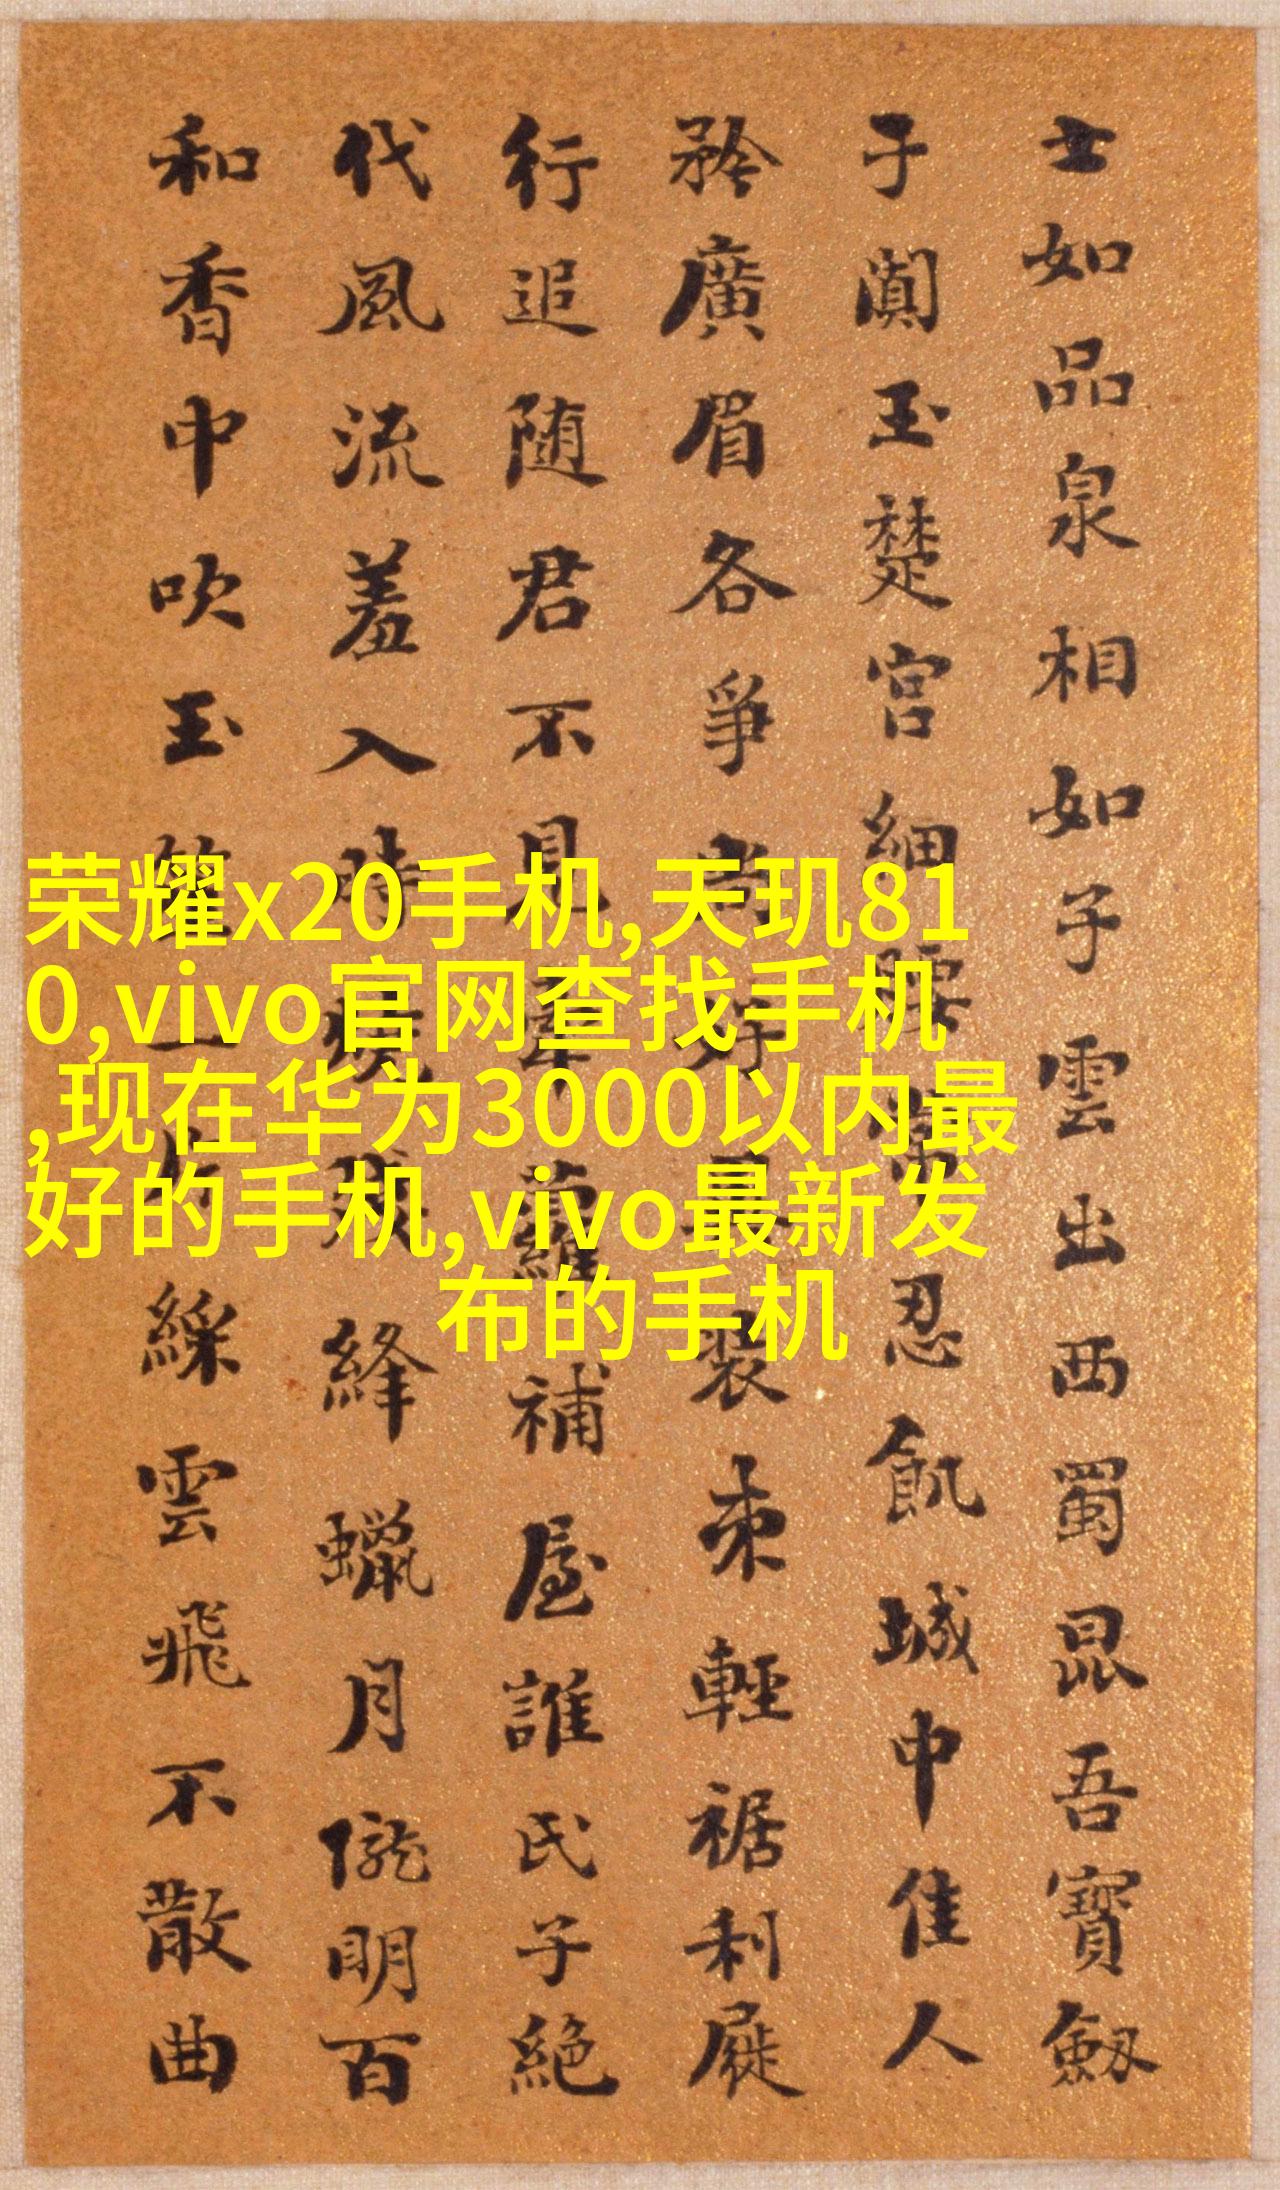 士如品泉相如子雲出西蜀昆吾寶劔
子闐玉楚宮細腰常忍飢城中佳人
矜廣眉各爭尚好裝束輕裾利屣
行追随君不見牽蘿補屋誰氏子絕
代風流羞入時燒殘絳蠟月朧明百
和香中吹玉笙一片綵雲飛不散曲
荣耀x20手机,天玑81
0,vivo官网查找手机
,现在华为3000以内最
好的手机,vivo最新发
布的手机